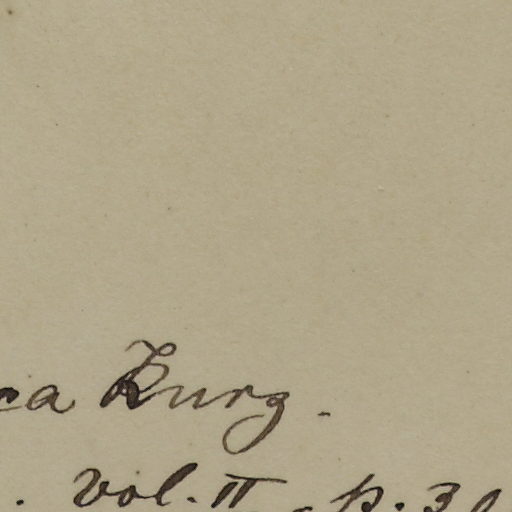 ca Kurz.
. Vol. II p. 3